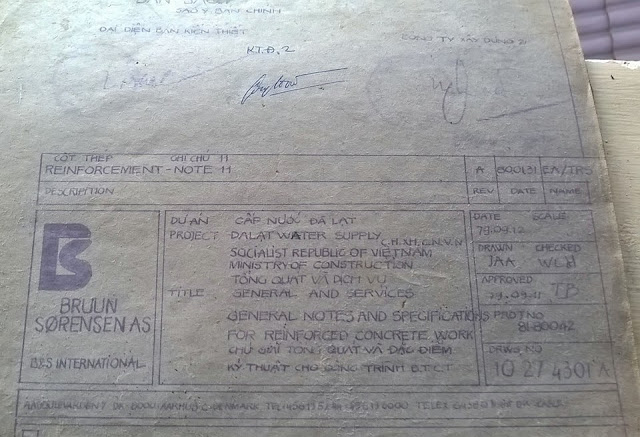 SAO Y BẢN CHÍNH
ĐẠI DIỆN BAN KIẾN THIẾT
K.T.Đ.2
CÔNG TY XÂY DỰNG 21
CỐT THÉP GHI CHÚ 11
REINFORCEMENT - NOTE 11
A 800131 EA/TRS
DESCRIPTION
REV DATE NAME
BRUUN
SØRENSEN AS
B&S INTERNATIONAL
DỰ ÁN CẤP NƯỚC ĐÀ LẠT
PROJECT DALAT WATER SUPPLY
C.H.XH.C.N.V.N
SOCIALIST REPUBLIC OF VIETNAM
MINISTRY OF CONSTRUCTION
TỔNG QUÁT VÀ DỊCH VỤ
TITLE GENERAL AND SERVICES
GENERAL NOTES AND SPECIFICATIONS
FOR REINFORCED CONCRETE WORK
CHÚ GHI TỔNG QUÁT VÀ ĐẶC ĐIỂM
KỸ THUẬT CHO CÔNG TRÌNH B.T.C.T
DATE SCALE
79.09.12
DRAWN CHECKED
JAA
APPROVED
79.09.11
PROJ NO
8180042
DRWG. NO
10 27 4301 A
DK-8000 AARHUS C DENMARK